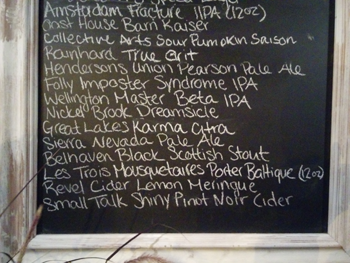 Amsterdam Fracture IIPA (12oz)
House Barn Kaiser
Collective Arts Sour Pumpkin Saison
Rainhard True Grit
Henderson's Union Pearson Pale Ale
Folly Imposter Syndrome IPA
Wellington Master Beta IPA
Nickel Brook Dreamsicle
Great Lakes Karma Citra
Sierra Nevada Pale Ale
Belhaven Black Scottish Stout
Les Trois Mousquetaires Porter Baltique (12oz)
Revel Cider Lemon Meringue
Small Talk Shiny Pinot Noir Cider